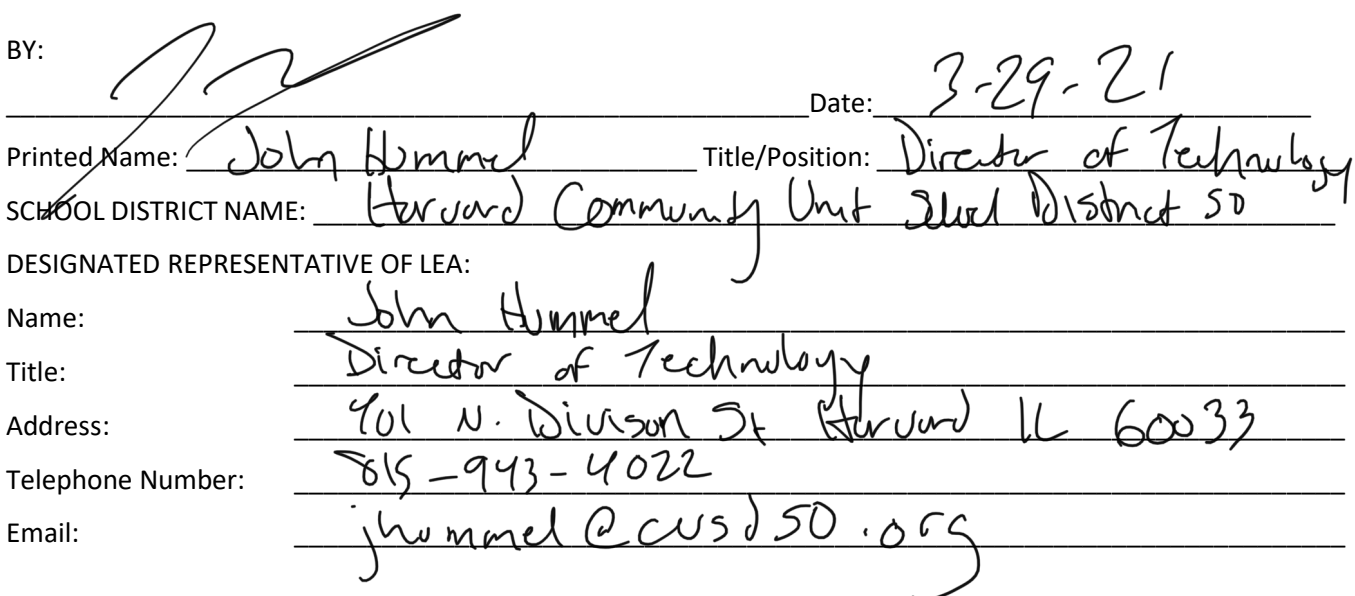 BY:
Date: 3-29-21
Printed Name: John Hummel Title/Position: Director of Technology
SCHOOL DISTRICT NAME: Harvard Community Unit School District 50
DESIGNATED REPRESENTATIVE OF LEA:
Name: John Hummel
Title: Director of Technology
Address: 401 N. Divison St Harvard IL 60033
Telephone Number: 815-943-4022
Email: jhummel@cusd50.org